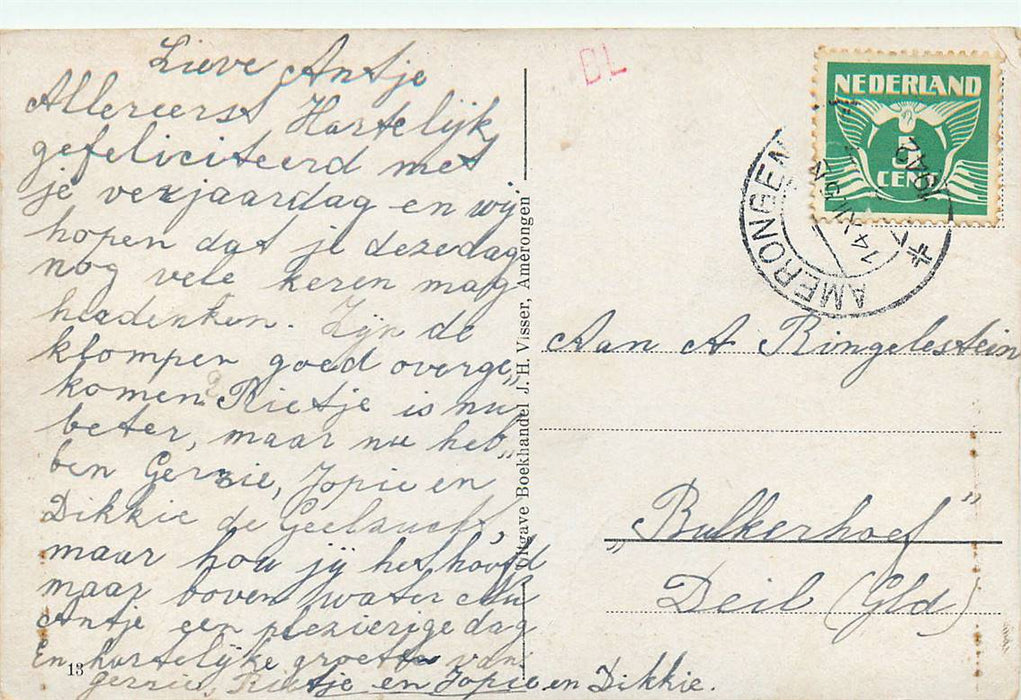 Lieve Antje
Allereerst Hartelijk
gefeliciteerd met
je verjaardag en wij
hopen dat je dezedag
nog vele keren mag
herdenken. Zijn de
klompen goed overge„
komen? Rietje is nu
beter, maar nu heb„
ben Gerrie, Jopie en
Dikkie de Geelzucht,
maar hou jij het hoofd
maar boven water
Antje een plezierige dag
En hartelijke groeten van
gerrie, Rietje en Jopie en Dikkie.
13
Uitgave Boekhandel J. H. Visser, Amerongen
BL
NEDERLAND
5
CENT
AMERONGEN
1942
Aan A Ringelestein
„Bulkerhoef”
Deil (Gld)